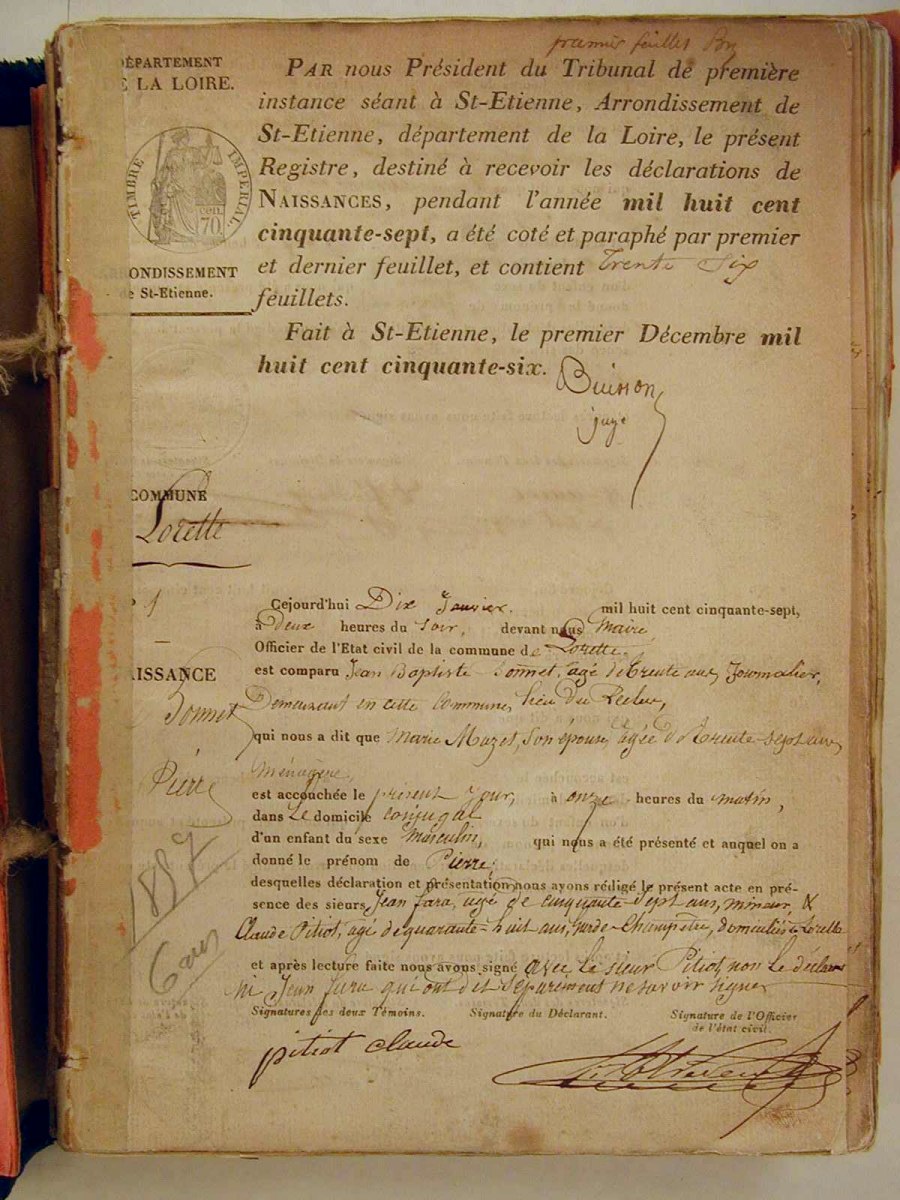 premier feuillet
DÉPARTEMENT
DE LA LOIRE.
TIMBRE IMPERIAL
cen. 70
ARRONDISSEMENT
de St-Etienne.
PAR nous Président du Tribunal de première
instance séant à St-Etienne, Arrondissement de
St-Etienne, département de la Loire, le présent
Registre, destiné à recevoir les déclarations de
NAISSANCES, pendant l'année mil huit cent
cinquante-sept, a été coté et paraphé par premier
et dernier feuillet, et contient Trente Six
feuillets.
Fait à St-Etienne, le premier Décembre mil
huit cent cinquante-six.
Buisson
juge
COMMUNE
Lorette
1
AISSANCE
Sonnet
Pierre
1857
6 ans
Cejourd'hui Dix Janvier, mil huit cent cinquante-sept,
à Deux heures du Soir, devant nous Maire,
Officier de l'Etat civil de la commune de Lorette,
est comparu Jean Baptiste Sonnet, agé de trente ans, Journalier,
Demeurant en cette Commune, lieu du
qui nous a dit que Marie Mazet, son épouse, agée de trente-sept ans,
Ménagère,
est accouchée le présent Jour, à onze heures du matin,
dans Le domicile conjugal
d'un enfant du sexe Masculin, qui nous a été présenté et auquel on a
donné le prénom de Pierre,
desquelles déclaration et présentation nous avons rédigé le présent acte en pré-
sence des sieurs Jean Fara, agé de cinquante-Sept ans, mineur, &
Claude Pitiot, agé de quarante-huit ans, Garde-Champêtre, domiciliés à Lorette
et après lecture faite nous avons signé avec le sieur Pitiot, non le déclarant
ni Jean Fara qui ont dit séparément ne savoir signer
Signatures des deux Témoins. Signature du Déclarant. Signature de l'Officier
de l'état civil.
pitiot claude